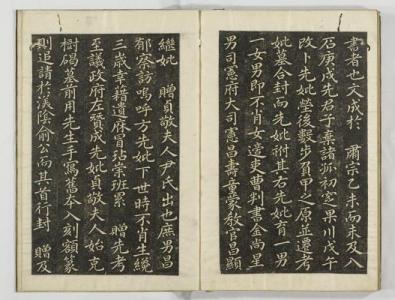 書者也文成於 肅宗乙未而未及入
石庚戌先君子棄諸孤初窆果川戊午
改卜先妣塋後數步負甲之原並遷考
妣墓合封而先妣祔其右先妣育一男
一女男即不肖女適吏曹判書金尚星
男司憲府大司憲昌壽童蒙敎官昌顯
繼妣 贈貞敬夫人尹氏出也庶男昌
郁察訪嗚呼方先妣下世時不肖生纔
三歲幸藉遺庥冒玷崇班累 贈先考
至議政府左贊成先妣貞敬夫人始克
樹碣墓前用先生手寫舊本入刻額篆
則追請於漢陰俞公而其首行封 贈及